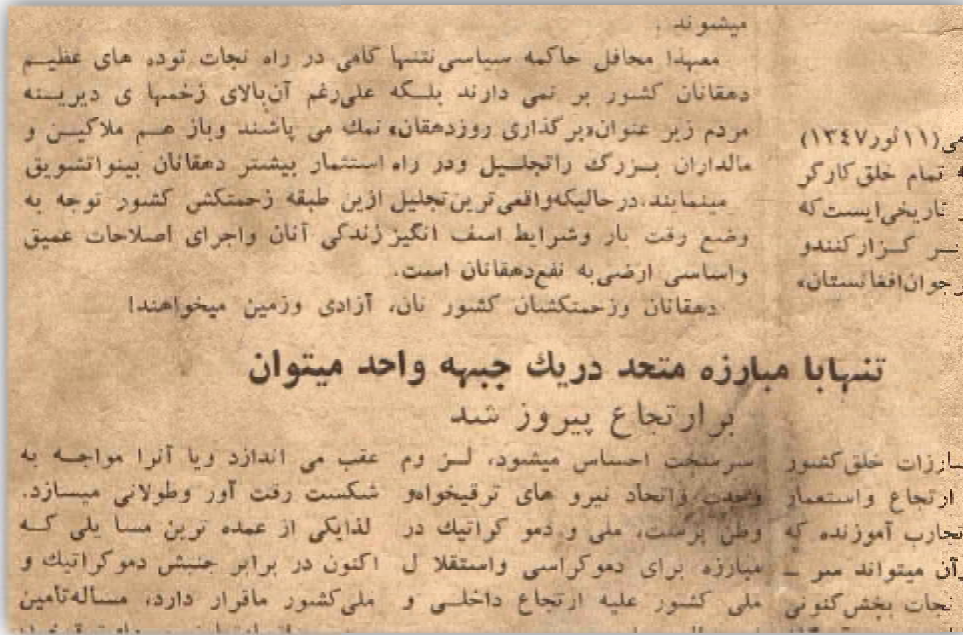 میشوند .
معهذا محافل حاکمه سیاسی نتنها گامی در راه نجات توده های عظیم
دهقانان کشور بر نمی دارند بلکه علی‌رغم آن بالای زخمها ی دیرینه
مردم زیر عنوان «برگذاری روزدهقان» نمك می پاشند وباز هم ملاکین و
مالداران بزرگ راتجلیل ودر راه استثمار بیشتر دهقانان بینواتشویق
مینمایند، درحالیکه واقعی ترین تجلیل ازین طبقه زحمتکش کشور توجه به
وضع رقت بار وشرایط اسف انگیز زندگی آنان واجرای اصلاحات عمیق
واساسی ارضی به نفع دهقانان است.
دهقانان وزحمتکشان کشور نان، آزادی وزمین میخواهند!
می (۱۱ ثور ۱۳۴۷)
تمام خلق کارگر
تاریخی ایست که
گزار کنندو
افغانستان»
تنهابا مبارزه متحد دریك جبهه واحد میتوان
برارتجاع پیروز شد
خلق کشور
ارتجاع واستعمار
تجارب آموزنده که
آن میتواند
نجات بخش کنونی
سرسخت احساس میشود، لز وم
وحدت واتحاد نیرو های ترقیخواهو
وطن پرست، ملی و دمو کراتیك در
مبارزه برای دموکراسی واستقلا ل
ملی کشور علیه ارتجاع داخلی و
عقب می اندازد ویا آنرا مواجه به
شکست رقت آور وطولانی میسازد.
لذایکی از عمده ترین مسا یلی که
اکنون در برابر جنبش دموکراتیك و
ملی کشور ماقرار دارد، مساله تأمین